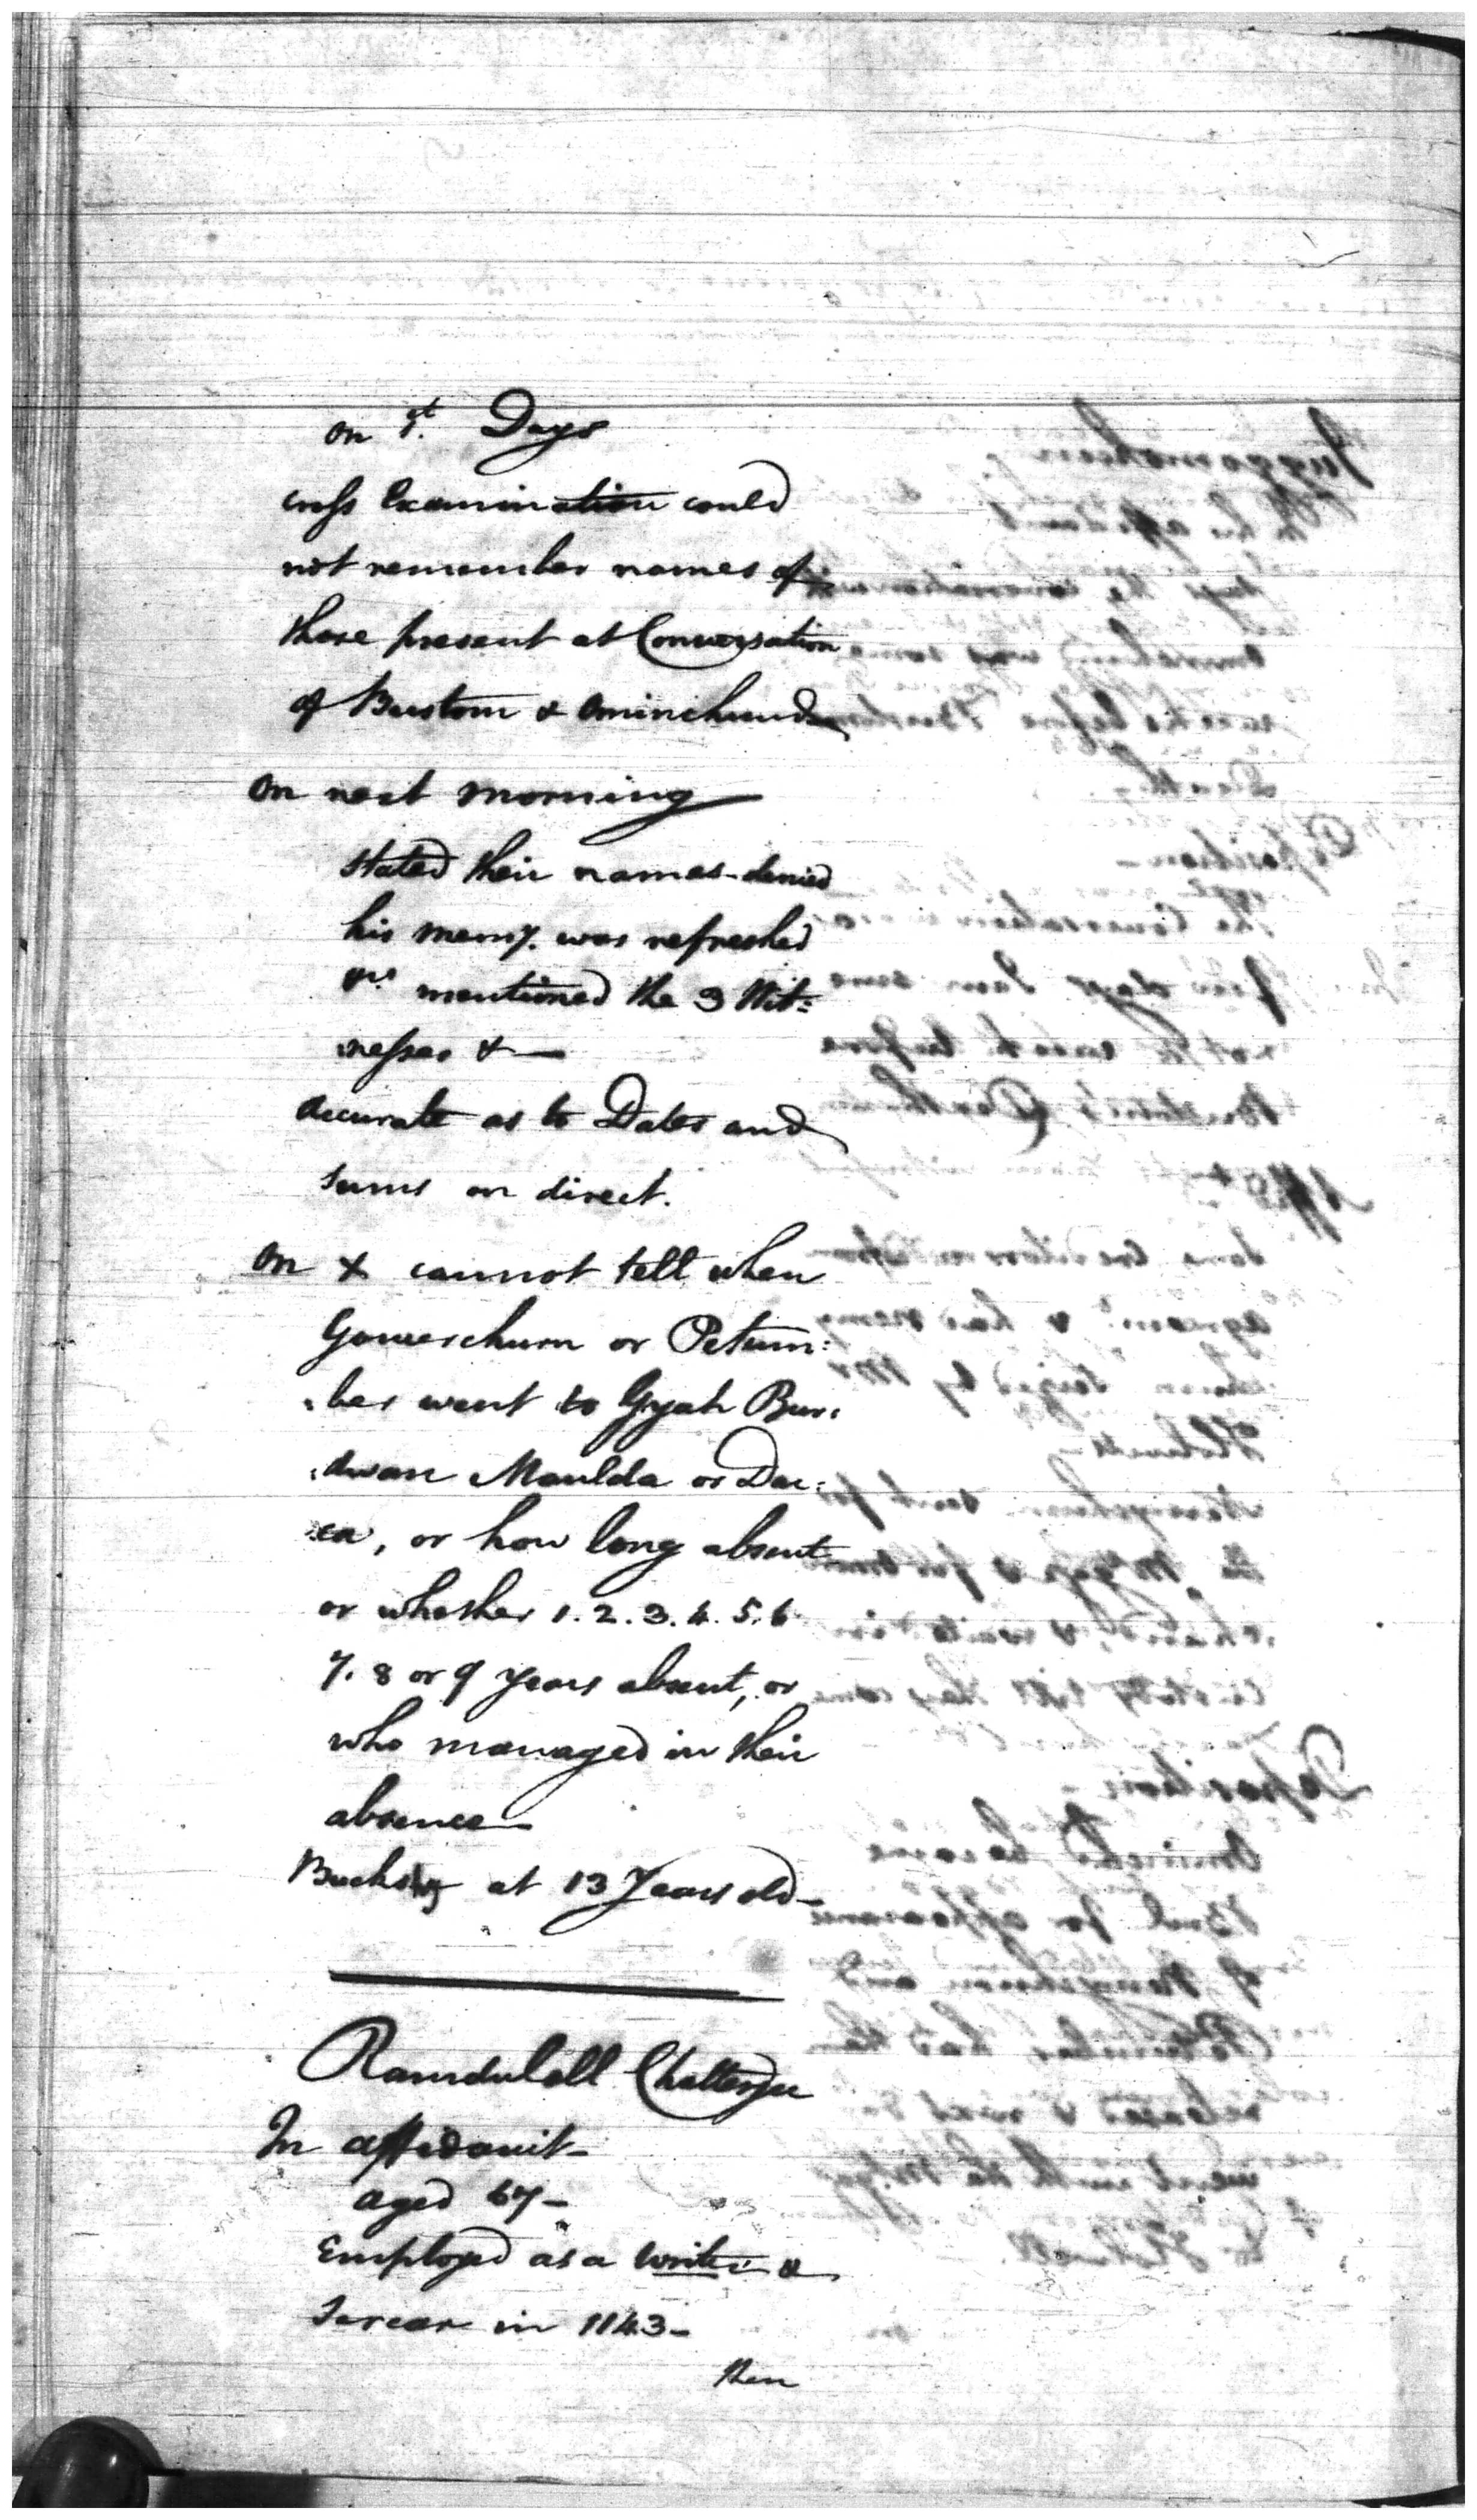 on 1st. Days
cross Examination could
not remember names of
those present at Conversation
of Bustom & Ominchund
On next morning
stated their names - denied
his memy. was refreshed
mentioned the 3 Wit=
nesses & —
Accurate as to Dates and
Sums on direct.
On X cannot tell when
Gowerchurn or Petum:
:ber went to Gyah Bur:
:dwan Maulda or Dac:
:ca, or how long absent
or whether 1. 2. 3. 4. 5. 6
7. 8 or 9 years absent, or
who managed in their
absence —
at 13 Years old —
Ramdulall Chatterjee
In affidavit —
aged 67 —
Employed as a writer &
Sercar in 1143 —
then